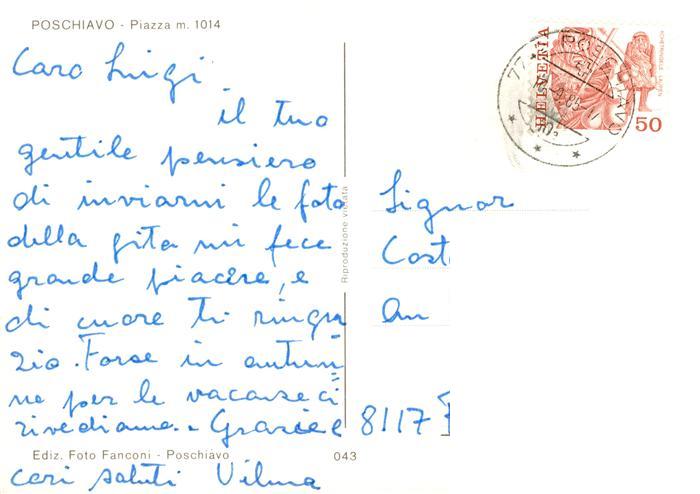 POSCHIAVO - Piazza m. 1014
Caro Luigi
il tuo
gentile pensiero
di inviarmi le foto
della gita mi fece
grande piacere, e
di cuore ti ringra
zio. Forse in autun
no per le vacanze ci
rivediamo. - Grazie e
cari saluti Vilma
Ediz. Foto Fanconi - Poschiavo
043
Riproduzione vietata
Signor
Cost
8117
HELVETIA
50
POSCHIAVO